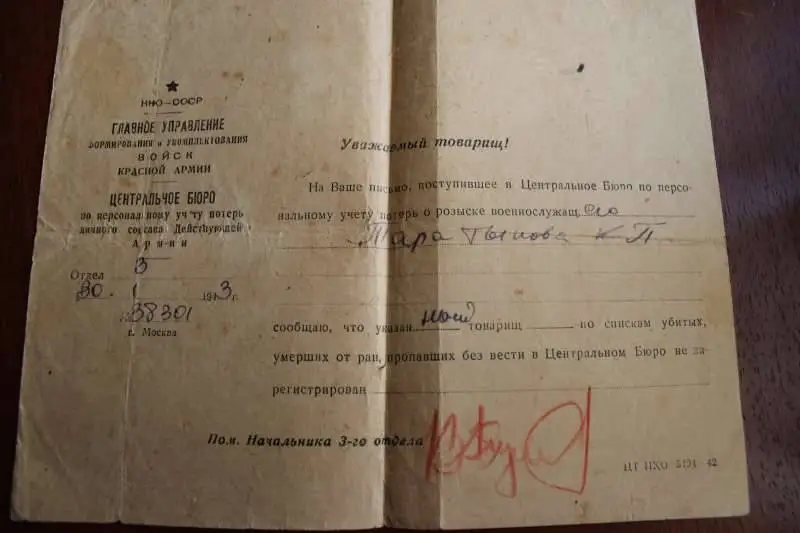 НКО–СССР
ГЛАВНОЕ УПРАВЛЕНИЕ
ФОРМИРОВАНИЯ и УКОМПЛЕКТОВАНИЯ
ВОЙСК
КРАСНОЙ АРМИИ
ЦЕНТРАЛЬНОЕ БЮРО
по персональному учету потерь
личного состава Действующей
Армии
Отдел 3
30. 1 1943 г.
№ 38301
г. Москва
Уважаемый товарищ!
На Ваше письмо, поступившее в Центральное Бюро по персо-
нальному учету потерь о розыске военнослужащ его
К П
сообщаю, что указан ный товарищ по спискам убитых,
умерших от ран, пропавших без вести в Центральном Бюро не за-
регистрирован
Пом. Начальника 3-го отдела
42